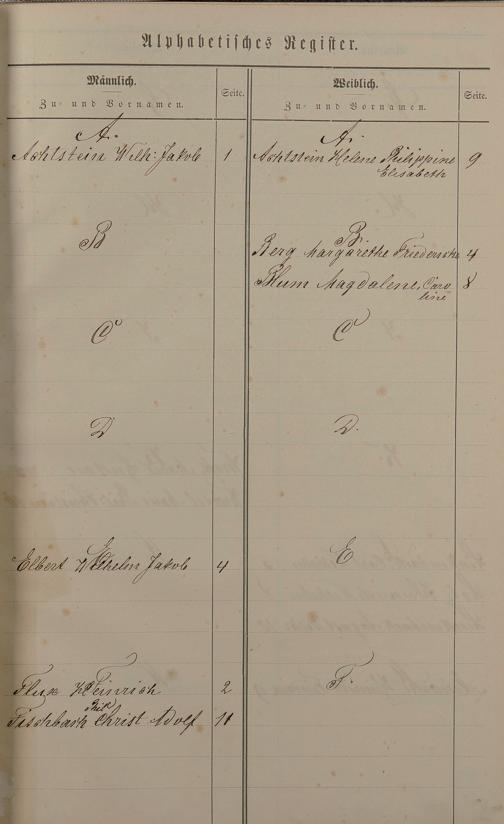 Alphabetisches Register.
Männlich.
Zu- und Vornamen.
Seite.
A.
Achlstein Wilh: Jakob 1
B
C
D
E
Elbert Wilhelm Jakob 4
F
Flux Heinrich 2
Phil
Fischbach Christ Adolf 11
Weiblich.
Zu- und Vornamen.
Seite.
A.
Achlstein Helene Philippine 9
Elisabeth
B.
Berg Margarethe 4
Blum Magdalene, Caro 8
line
C
D.
E
F.